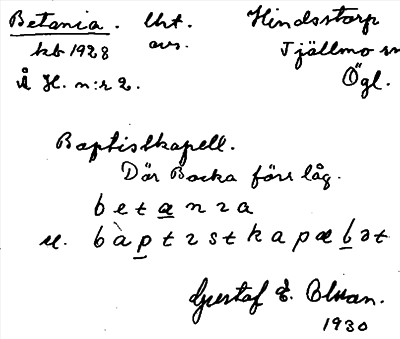 Betania. Utt. Hindsstorp
kb 1928 avs. Tjällmo sn
Å H. n:r 2. Ögl.
Baptistkapell.
Där Backa förr låg.
betania
u. bàptistkapælət
Gustaf E.
1930